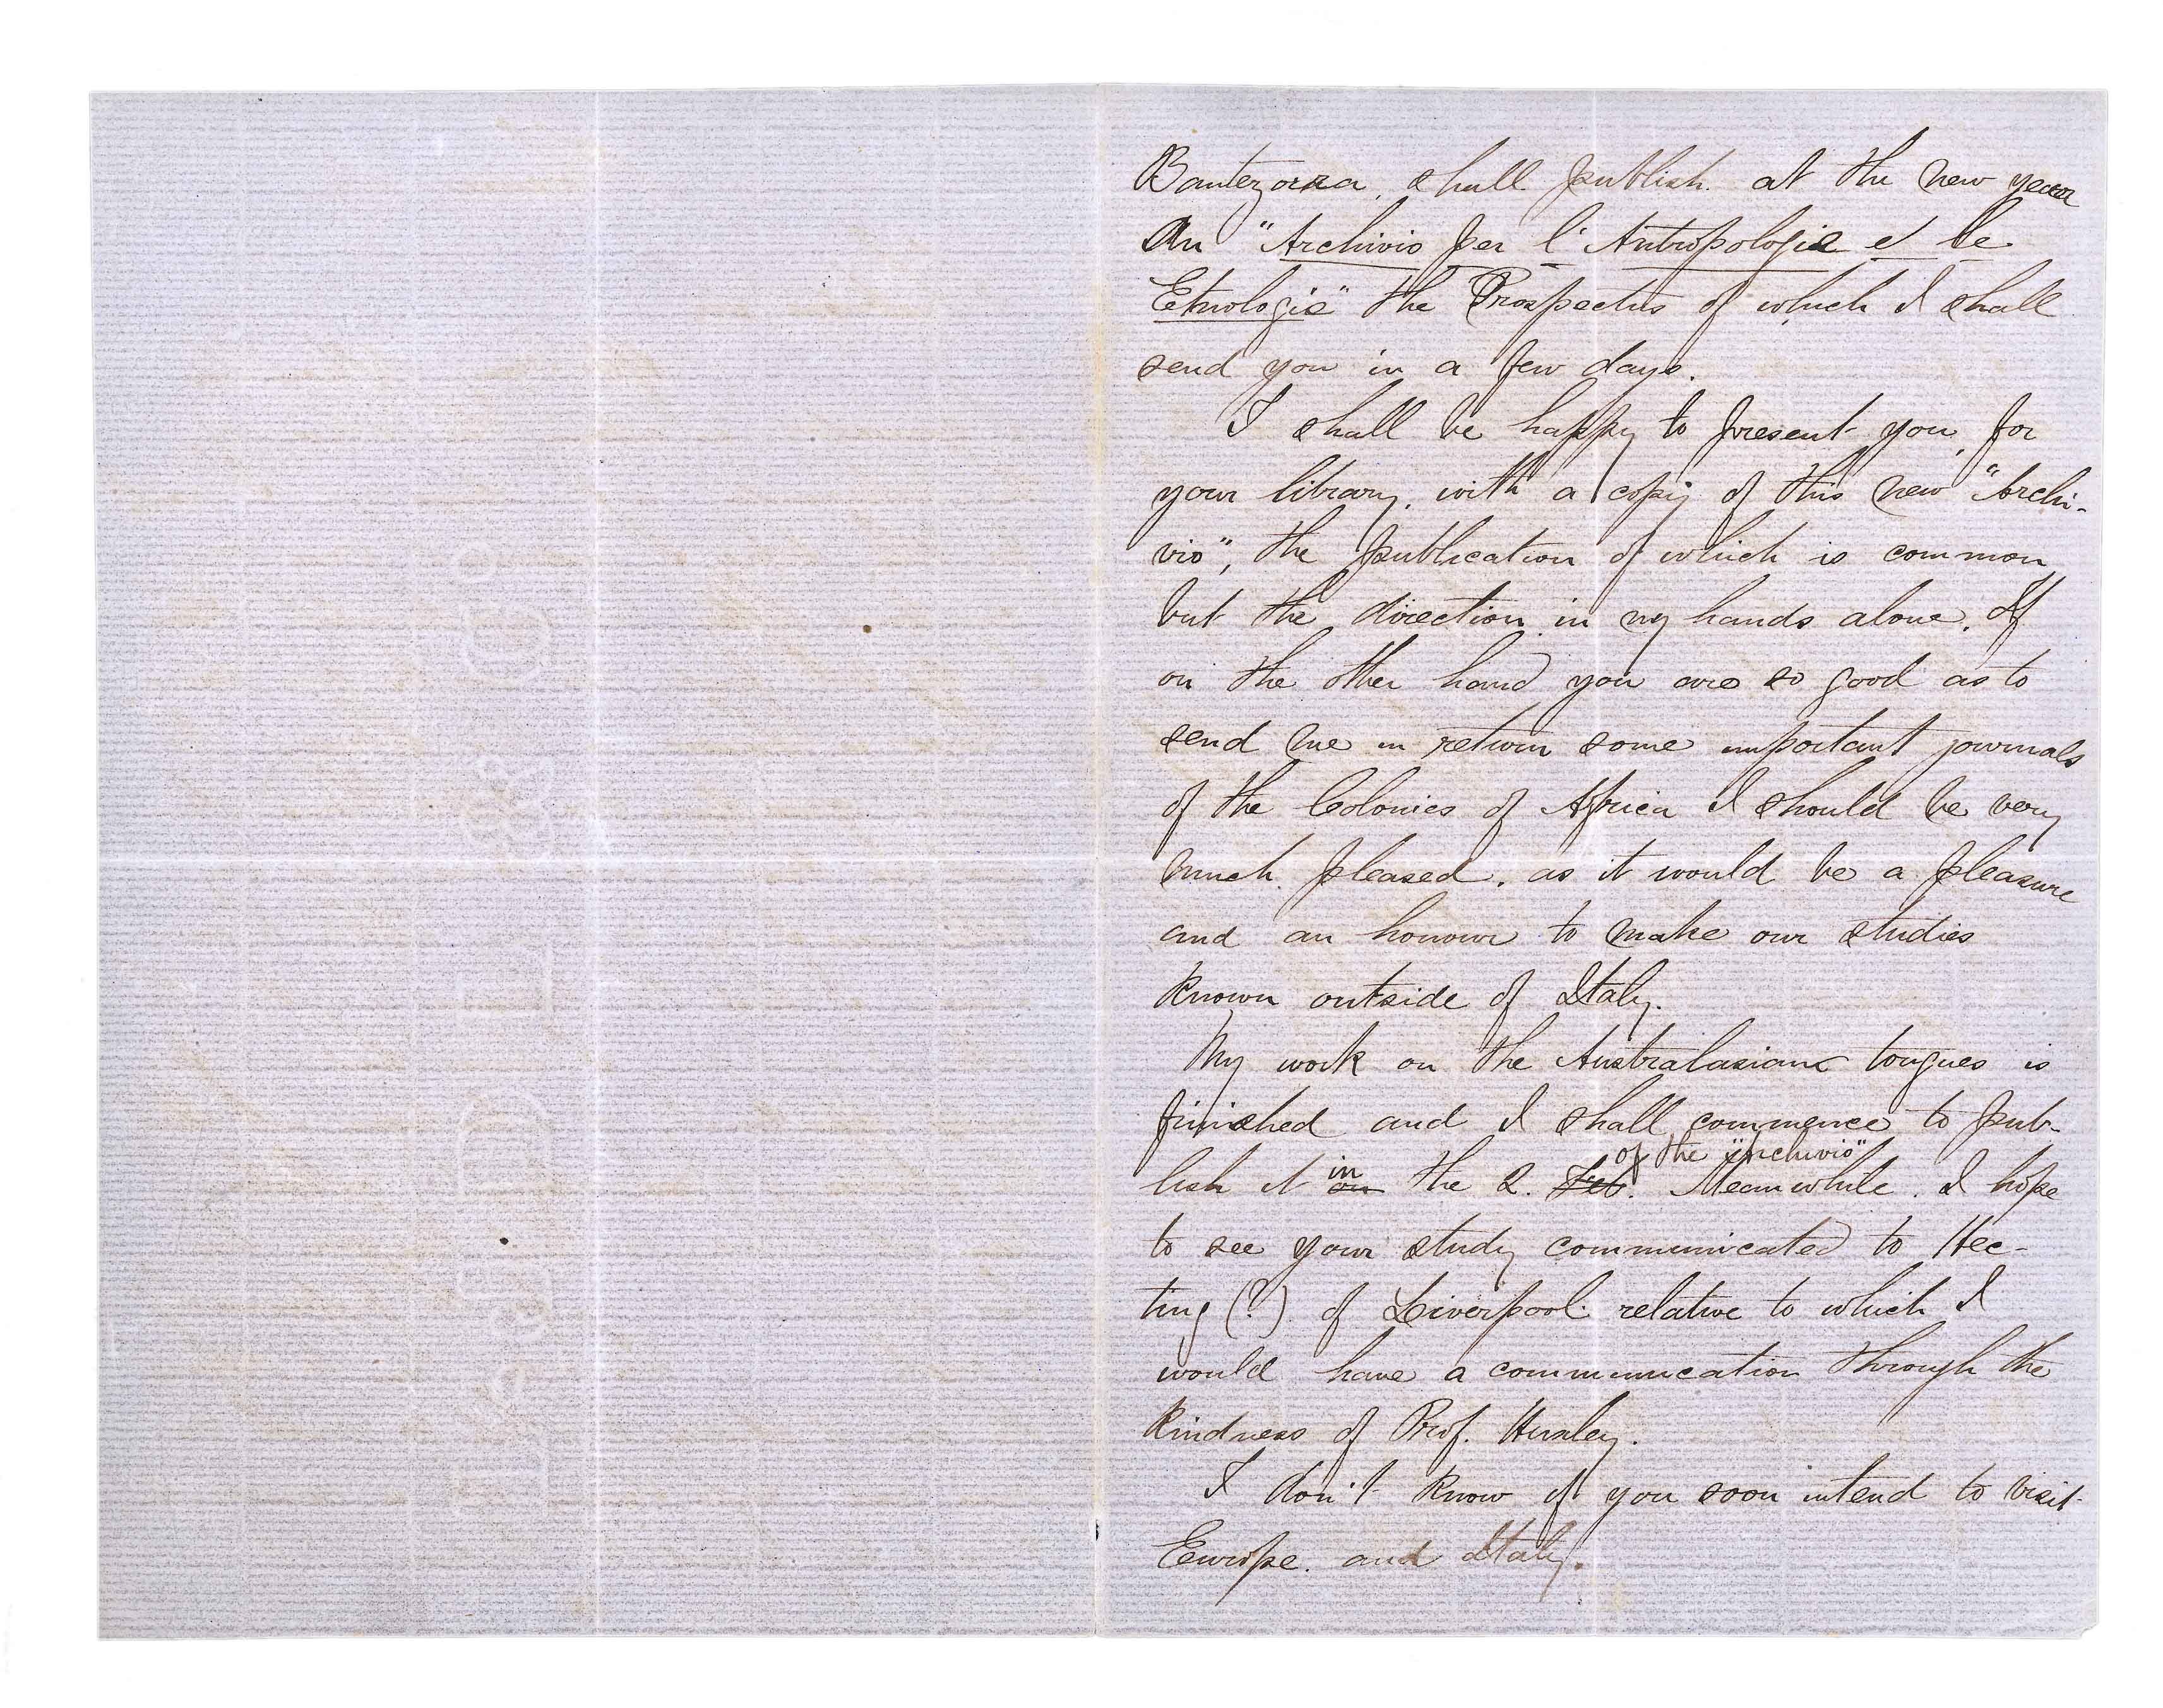 Bantezorra, shall publish at the new year
An "Archivio per l'Antropologia et le
Etnologie" the Prospectus of which I shall
send you in a few days.
I shall be happy to present you, for
your library, with a copy of this new "Archi-
vio", the publication of which is common,
but the direction in my hands alone. If
on the other hand you are so good as to
send me in return some important journals
of the Colonies of Africa I should be very
much pleased, as it would be a pleasure
and an honour to make our studies
known outside of Italy.
My work on the Australasian tongues is
finished and I shall commence to pub-
of the "Archivio"
lish it on in the 2. Feb. Meanwhile, I hope
to see your study communicated to Hec-
ting (?) of Liverpool relative to which I
would have a communication through the
kindness of Prof. Huxley.
I don't know if you soon intend to visit
Europe and Italy.